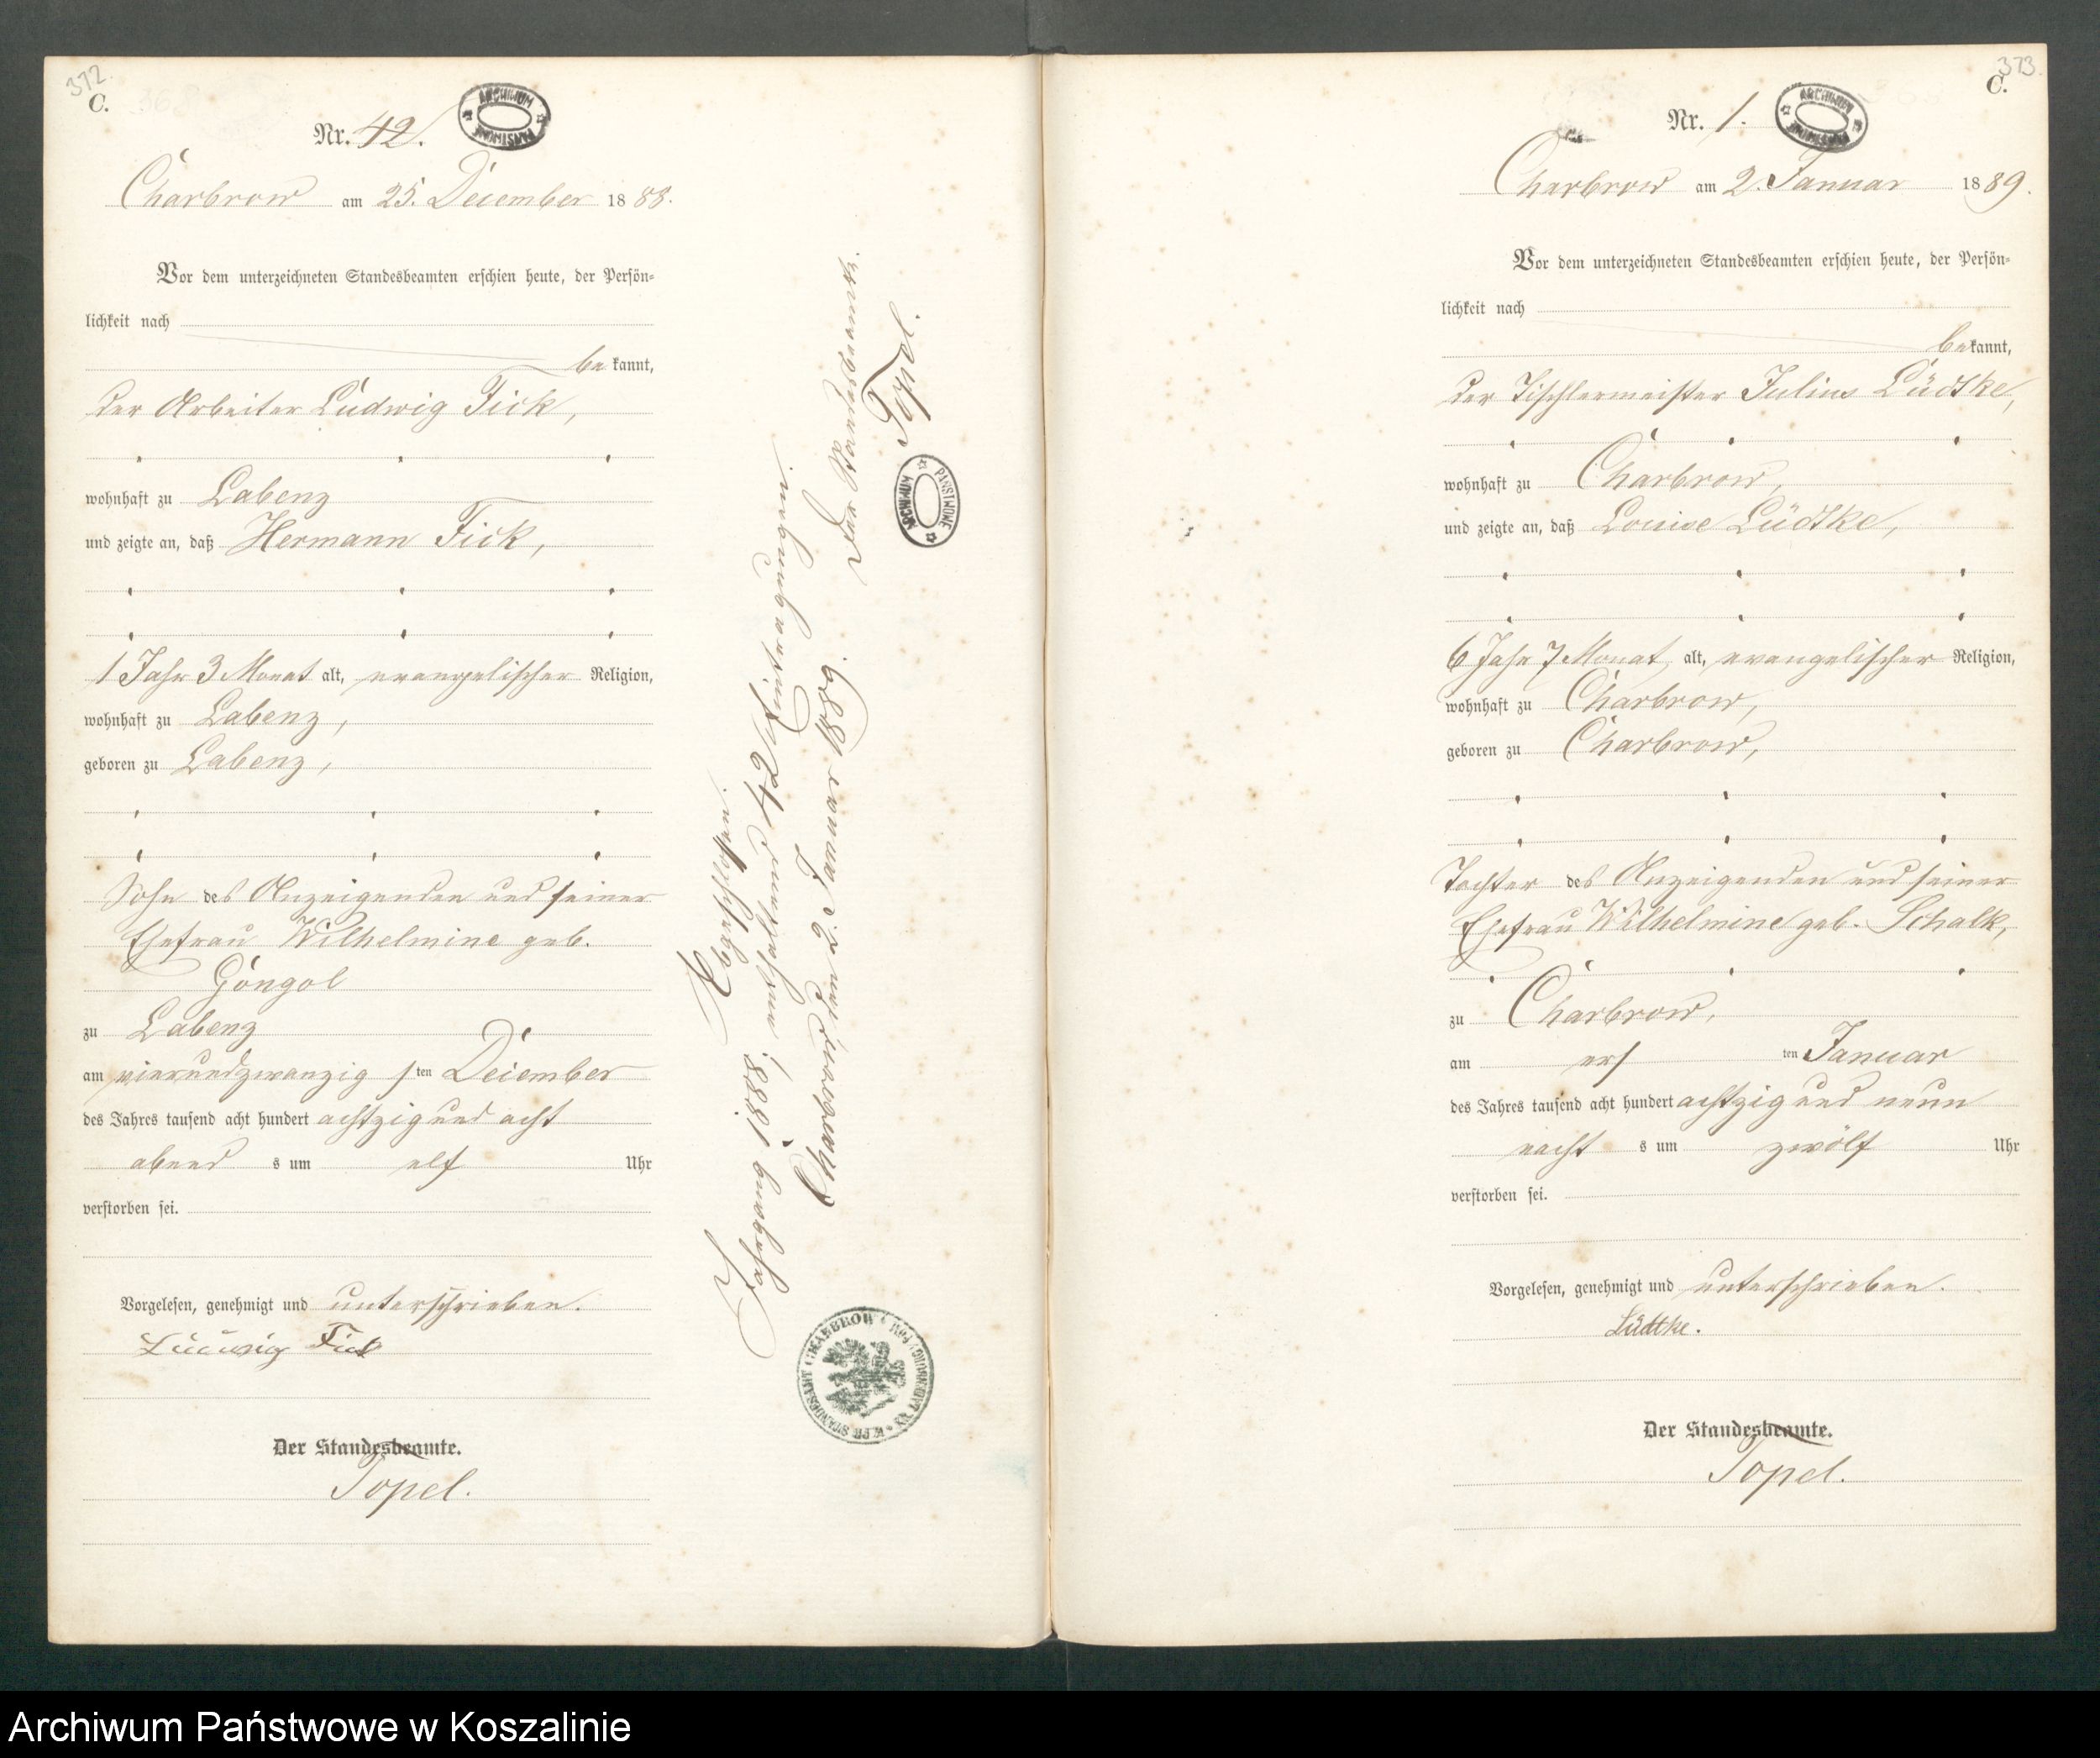 372
C.
Nr. 42.
ARCHIWUM PAŃSTWOWE
Charbrow am 25. December 1888.
Vor dem unterzeichneten Standesbeamten erschien heute, der Persön-
lichkeit nach
bekannt,
der Arbeiter Ludwig Fick,
wohnhaft zu Labenz
und zeigte an, daß Hermann Fick,
1 Jahr 3 Monat alt, evangelischer Religion,
wohnhaft zu Labenz,
geboren zu Labenz,
Sohn des Anzeigenden und seiner
Ehefrau Wilhelmine geb.
Göngol
zu Labenz
am vierundzwanzigsten December
des Jahres tausend acht hundert achtzig und acht
abends um elf Uhr
verstorben sei.
Vorgelesen, genehmigt und unterschrieben.
Ludwig Fick
Der Standesbeamte.
Topel.
Abgeschlossen.
Jahrgang 1888, enthaltend 42 Eintragungen.
Charbrow, den 2. Januar 1889.
Der Standesbeamte.
Topel.
ARCHIWUM PAŃSTWOWE
K. PR. STANDESAMT CHARBROW
373
C.
Nr. 1.
ARCHIWUM PAŃSTWOWE
Charbrow am 2. Januar 1889.
Vor dem unterzeichneten Standesbeamten erschien heute, der Persön-
lichkeit nach
bekannt,
der Tischlermeister Julius Lüdtke,
wohnhaft zu Charbrow,
und zeigte an, daß Louise Lüdtke,
6 Jahr 7 Monat, alt, evangelischer Religion,
wohnhaft zu Charbrow,
geboren zu Charbrow,
Tochter des Anzeigenden und seiner
Ehefrau Wilhelmine geb. Schalk,
zu Charbrow,
am ersten Januar
des Jahres tausend acht hundert achtzig und neun
nachts um zwölf Uhr
verstorben sei.
Vorgelesen, genehmigt und unterschrieben.
Lüdtke.
Der Standesbeamte.
Topel.
Archiwum Państwowe w Koszalinie